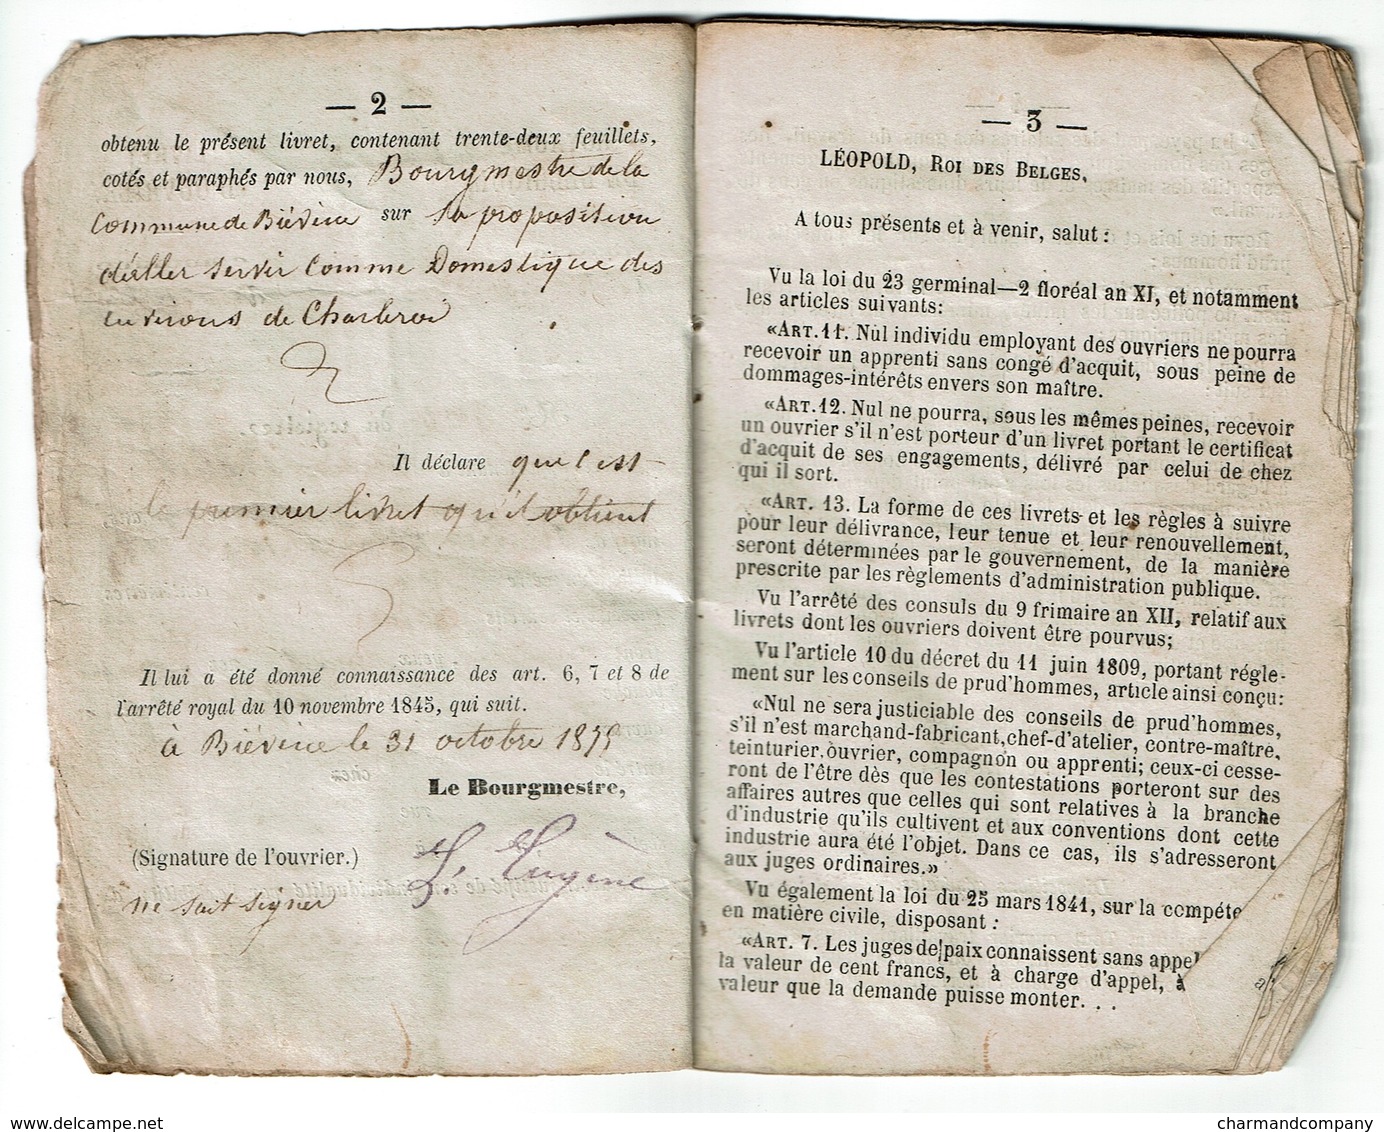 — 2 —
obtenu le présent livret, contenant trente-deux feuillets,
cotés et paraphés par nous, Bourgmestre de la
Commune de Biévène sur sa proposition
d'aller servir comme Domestique des
environs de Charleroi
Il déclare que c'est
le premier livret qu'il obtient
Il lui a été donné connaissance des art. 6, 7 et 8 de
l'arrêté royal du 10 novembre 1845, qui suit.
à Biévène le 31 octobre 1879
Le Bourgmestre,
(Signature de l'ouvrier.)
ne sait signer
Eugène
— 3 —
LÉOPOLD, ROI DES BELGES,
A tous présents et à venir, salut :
Vu la loi du 23 germinal—2 floréal an XI, et notamment
les articles suivants:
«ART. 11. Nul individu employant des ouvriers ne pourra
recevoir un apprenti sans congé d'acquit, sous peine de
dommages-intérêts envers son maître.
«ART. 12. Nul ne pourra, sous les mêmes peines, recevoir
un ouvrier s'il n'est porteur d'un livret portant le certificat
d'acquit de ses engagements, délivré par celui de chez
qui il sort.
«ART. 13. La forme de ces livrets et les règles à suivre
pour leur délivrance, leur tenue et leur renouvellement,
seront déterminées par le gouvernement, de la manière
prescrite par les règlements d'administration publique.
Vu l'arrêté des consuls du 9 frimaire an XII, relatif aux
livrets dont les ouvriers doivent être pourvus;
Vu l'article 10 du décret du 11 juin 1809, portant régle-
ment sur les conseils de prud'hommes, article ainsi conçu:
«Nul ne sera justiciable des conseils de prud'hommes,
s'il n'est marchand-fabricant, chef-d'atelier, contre-maître,
teinturier, ouvrier, compagnon ou apprenti; ceux-ci cesse-
ront de l'être dès que les contestations porteront sur des
affaires autres que celles qui sont relatives à la branche
d'industrie qu'ils cultivent et aux conventions dont cette
industrie aura été l'objet. Dans ce cas, ils s'adresseront
aux juges ordinaires.»
Vu également la loi du 25 mars 1841, sur la compéte
en matière civile, disposant :
«ART. 7. Les juges de paix connaissent sans appel
la valeur de cent francs, et à charge d'appel, à
valeur que la demande puisse monter. . .
delcampe.net
charmandcompany